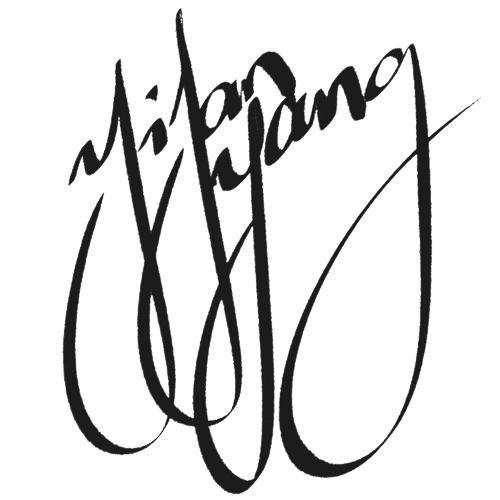 Yifan
Yang